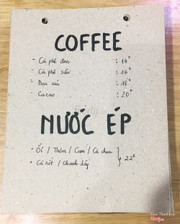 COFFEE
- Cà phê đen : 14ᵏ
- Cà phê sữa : 16ᵏ
- Bạc xỉu : 18ᵏ
- Cacao : 20ᵏ
NƯỚC ÉP
- Ổi / Thơm / Cam / Cà chua
- Cà rốt / Chanh dây } 22ᵏ